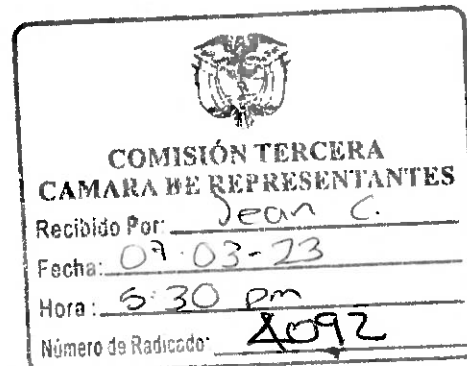 COMISIÓN TERCERA
CAMARA DE REPRESENTANTES
Recibido Por: Jean C.
Fecha: 07-03-23
Hora: 5:30 pm
Número de Radicado: 4092